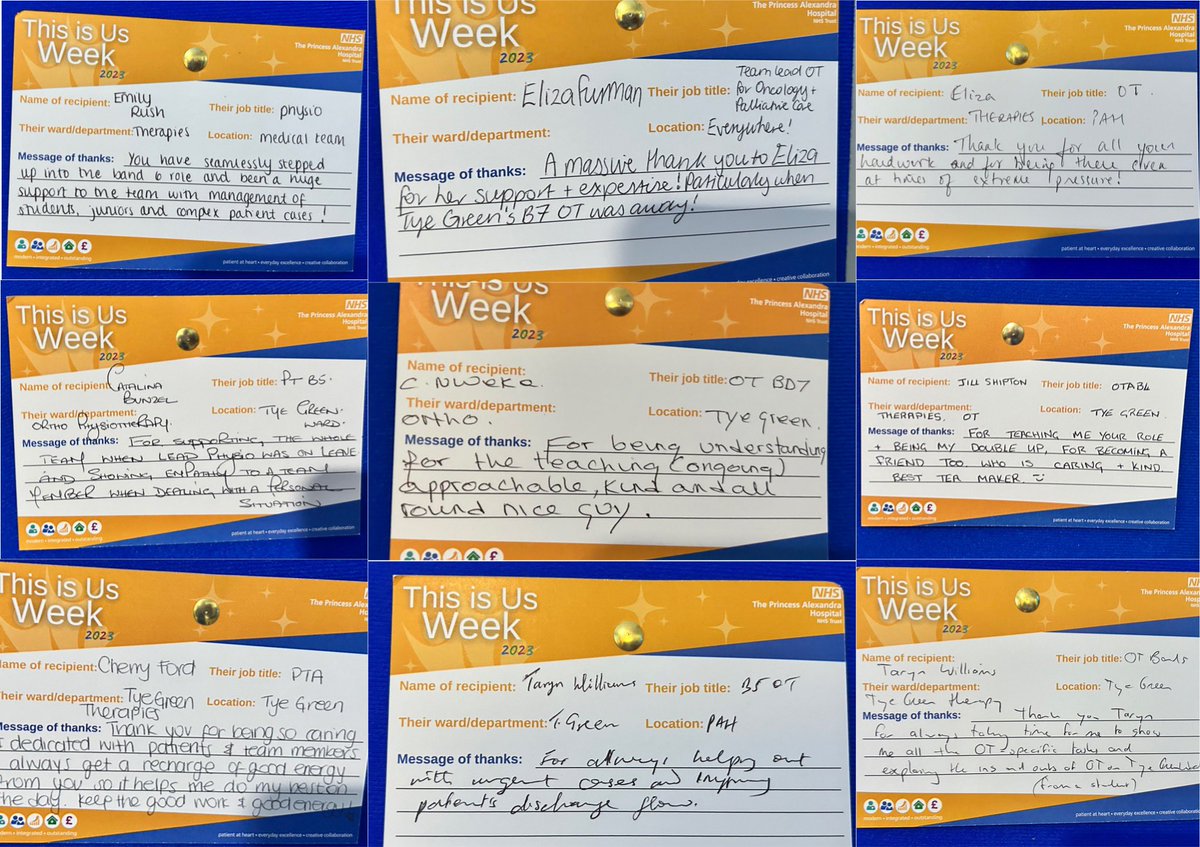 This is Us
Week
2023
NHS
The Princess Alexandra
Hospital
NHS Trust
Name of recipient: Emily
Rush
Their job title: physio
Their ward/department: Therapies
Location: medical team
Message of thanks: You have seamlessly stepped
up into the band 6 role and been a huge
support to the team with management of
students, juniors and complex patient cases!
modern • integrated • outstanding
patient at heart • everyday excellence • creative collaboration
This is Us
Week
2023
NHS
The Princess Alexandra
Hospital
NHS Trust
Name of recipient: Eliza Furman
Their job title: Team lead OT
for Oncology +
Palliative Care
Their ward/department:
Location: Everywhere!
Message of thanks: A massive thank you to Eliza
for her support + expertise! Particularly when
Tye Green's B7 OT was away!
patient at heart • everyday excellence • creative collaboration
This is Us
Week
2023
NHS
The Princess Alexandra
Hospital
NHS Trust
Name of recipient: Eliza
Their job title: OT.
Their ward/department: THERAPIES
Location: PAH
Message of thanks: Thank you for all your
hardwork and for being there even
at times of extreme pressure!
modern • integrated • outstanding
patient at heart • everyday excellence • creative collaboration
This is Us
Week
2023
NHS
The Princess Alexandra
Hospital
NHS Trust
Name of recipient: CATALINA
BUNZEL
Their job title: PT B5.
Their ward/department:
ORTHO PHYSIOTHERAPY.
Location: TYE GREEN
WARD.
Message of thanks: FOR SUPPORTING, THE WHOLE
TEAM WHEN LEAD PHYSIO WAS ON LEAVE
AND SHOWING EMPATHY TO A TEAM
MEMBER WHEN DEALING WITH A PERSONAL
SITUATION
modern • integrated • outstanding
patient at heart • everyday excellence • creative collaboration
This is Us
Week
2023
NHS
The Princess Alexandra
Hospital
NHS Trust
Name of recipient:
C. NWEKE.
Their job title: OT BD7
Their ward/department:
ORTHO.
Location: Tye green.
Message of thanks: For being understanding
for the teaching (ongoing)
approachable, kind and all
round nice guy.
This is Us
Week
2023
NHS
The Princess Alexandra
Hospital
NHS Trust
Name of recipient: JILL SHIPTON
Their job title: OTA B4
Their ward/department:
THERAPIES. OT
Location: TYE GREEN.
Message of thanks: FOR TEACHING ME YOUR ROLE
+ BEING MY DOUBLE UP, FOR BECOMING A
FRIEND TOO. WHO IS CARING + KIND.
BEST TEA MAKER.
modern • integrated • outstanding
patient at heart • everyday excellence • creative collaboration
This is Us
Week
2023
NHS
The Princess Alexandra
Hospital
NHS Trust
Name of recipient: Cherry Ford
Their job title: PTA
Their ward/department: Tye Green
Therapies
Location: Tye Green
Message of thanks: Thank you for being so caring
& dedicated with patients & team members
I always get a recharge of good energy
from you so it helps me do my best on
the day. Keep the good work & good energy
modern • integrated • outstanding
patient at heart • everyday excellence • creative collaboration
This is Us
Week
2023
NHS
The Princess Alexandra
Hospital
NHS Trust
Name of recipient: Taryn Williams
Their job title: B5 OT
Their ward/department: T. Green
Location: PAH
Message of thanks: For always helping out
with urgent cases and improving
patients discharge flow.
This is Us
Week
2023
NHS
The Princess Alexandra
Hospital
NHS Trust
Name of recipient:
Taryn Williams
Their job title: OT Band 5
Their ward/department:
Tye Green therapy
Location: Tye Green
Message of thanks: Thank you Taryn
for always taking time for me to show
me all the OT-specific tasks and
exploring the ins and outs of OT on Tye Green
(from a student)
modern • integrated • outstanding
patient at heart • everyday excellence • creative collaboration